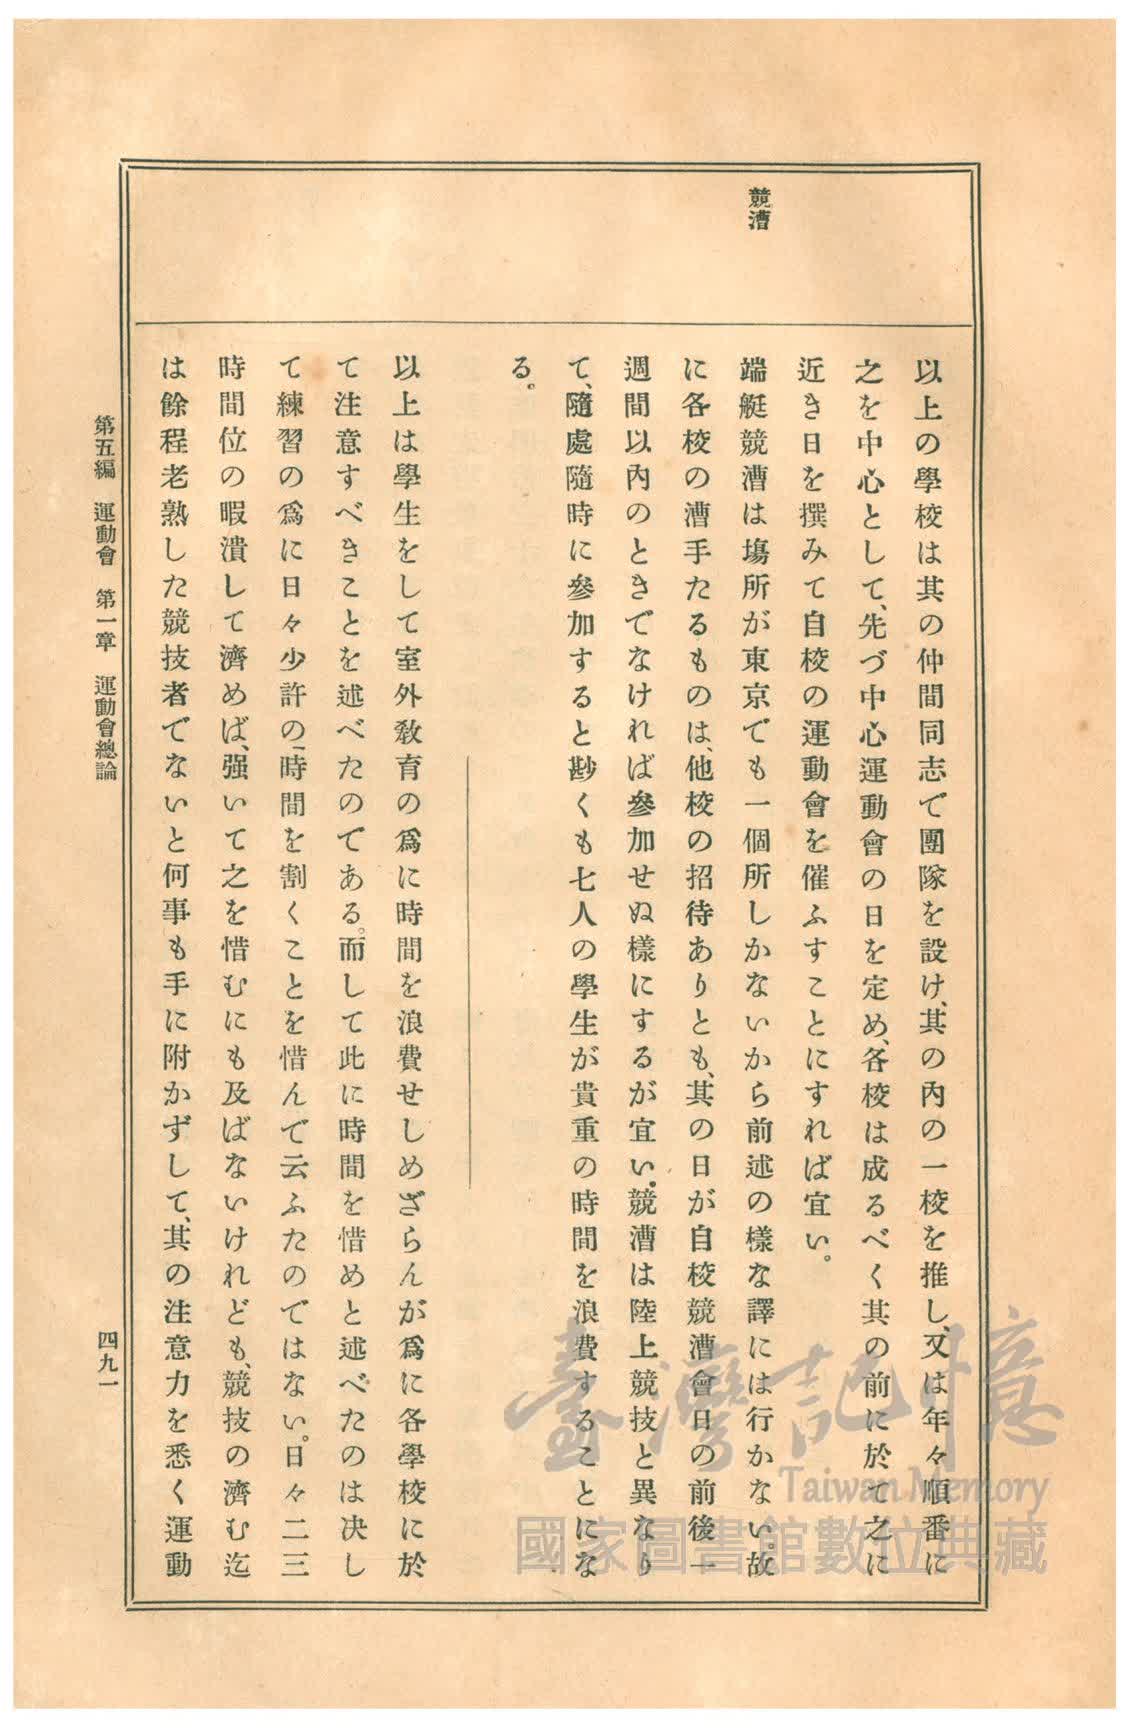 競漕
以上の學校は其の仲間同志で團隊を設け、其の內の一校を推し、又は年々順番に
之を中心として、先づ中心運動會の日を定め、各校は成るべく其の前に於て之に
近き日を撰みて自校の運動會を催ふすことにすれば宜い。
端艇競漕は塲所が東京でも一個所しかないから前述の樣な譯には行かない。故
に各校の漕手たるものは、他校の招待ありとも、其の日が自校競漕會日の前後一
週間以內のときでなければ參加せぬ樣にするが宜い。競漕は陸上競技と異なり
て、隨處隨時に參加すると尠くも七人の學生が貴重の時間を浪費することにな
る。
以上は學生をして室外敎育の爲に時間を浪費せしめざらんが爲に各學校に於
て注意すべきことを述べたのである。而して此に時間を惜めと述べたのは决し
て練習の爲に日々少許の時間を割くことを惜んで云ふたのではない。日々二三
時間位の暇潰して濟めば、强いて之を惜むにも及ばないけれども、競技の濟む迄
は餘程老熟した競技者でないと何事も手に附かずして、其の注意力を悉く運動
第五編　運動會　第一章　運動會總論
四九一
臺灣記憶
Taiwan Memory
國家圖書館數位典藏